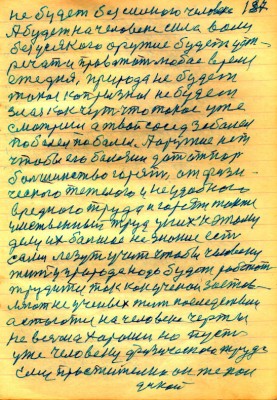 не будет без меного человека 187
А будет на человеке сила воли
без всякого оружие будет уст
речати провожат любое время
ежедня, природа не будет
такое капризная не будет
зла как чут что такое уже
смотриш а твой сосед заболел
поболел поболел. А оружие нет
чтобы его болезни дат отпор
болшинство горят от физи-
ческого тяжелого и неудобного
вредного труда и горят также
умственный труд у них к этому
делу их большое не знание ест
сами лезут учит чтобы человеку
жит в природе надо будет работат
трудится так как ученои застав-
ляют не ученых жит последствии
остаются на человеке черты
не всегда хороши но пуст
уже человеку физического труда
ему простително он же кой